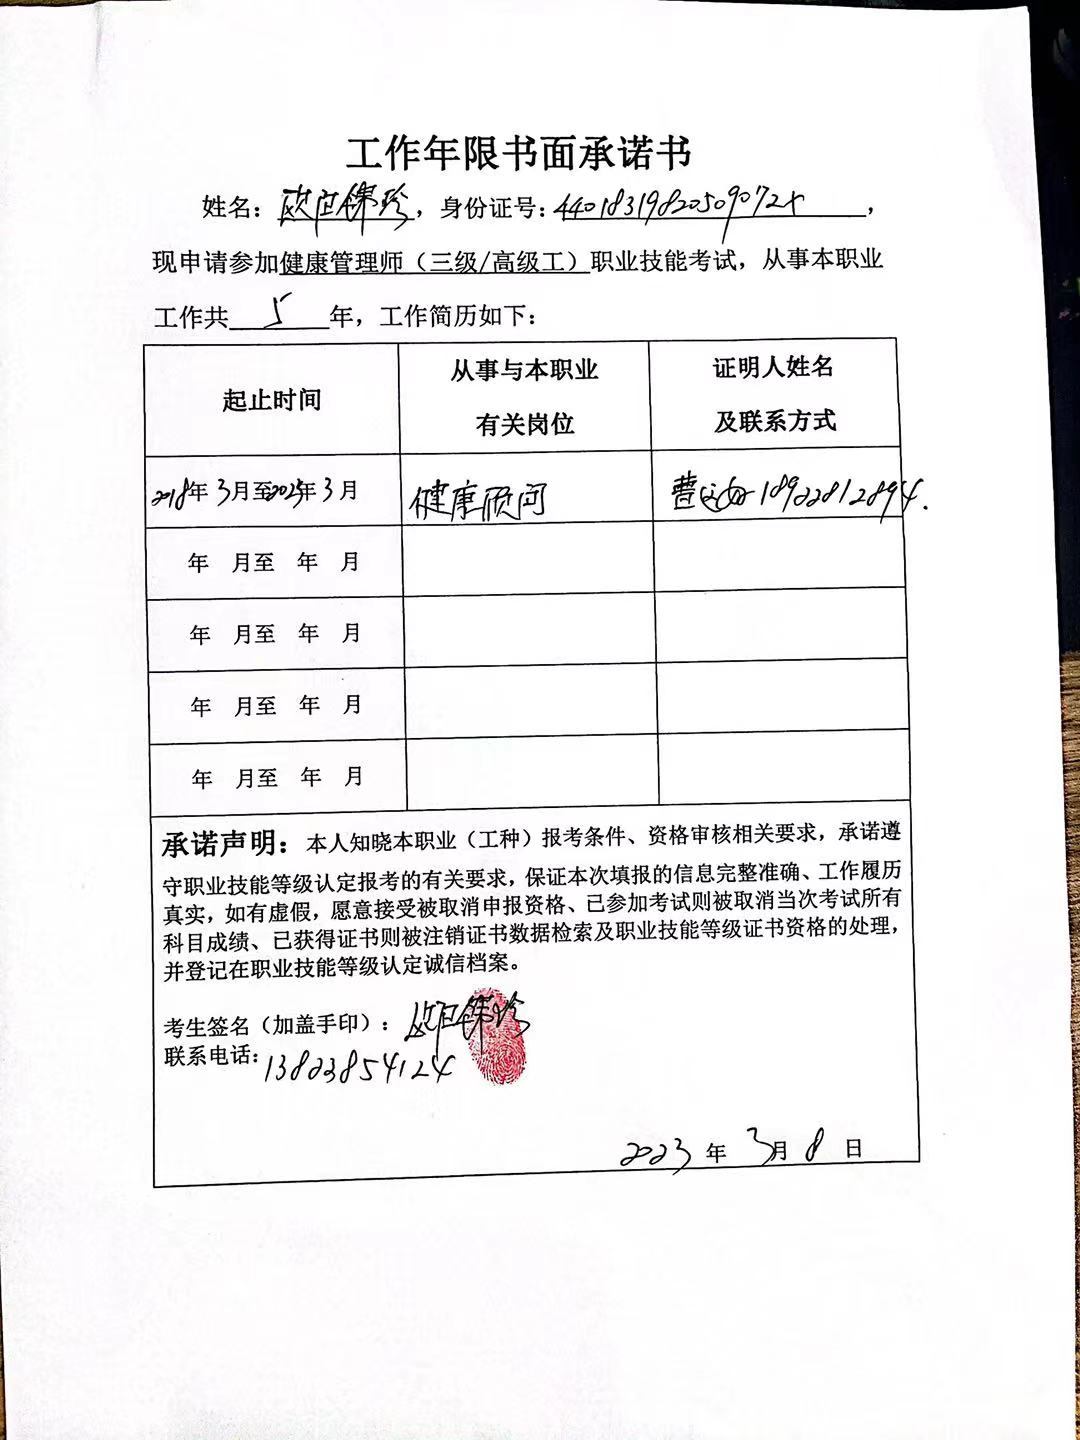 工作年限书面承诺书
姓名：欧锦珍，身份证号：44018319820509072X，
现申请参加健康管理师（三级/高级工）职业技能考试，从事本职业
工作共 5 年，工作简历如下：
起止时间 从事与本职业有关岗位 证明人姓名及联系方式
2018年3月至2023年3月 健康顾问 曹 18922812894.
年 月至 年 月
年 月至 年 月
年 月至 年 月
年 月至 年 月
承诺声明：本人知晓本职业（工种）报考条件、资格审核相关要求，承诺遵
守职业技能等级认定报考的有关要求，保证本次填报的信息完整准确、工作履历
真实，如有虚假，愿意接受被取消申报资格、已参加考试则被取消当次考试所有
科目成绩、已获得证书则被注销证书数据检索及职业技能等级证书资格的处理，
并登记在职业技能等级认定诚信档案。
考生签名（加盖手印）：欧锦珍
联系电话：13823854124
2023 年 3月 8 日